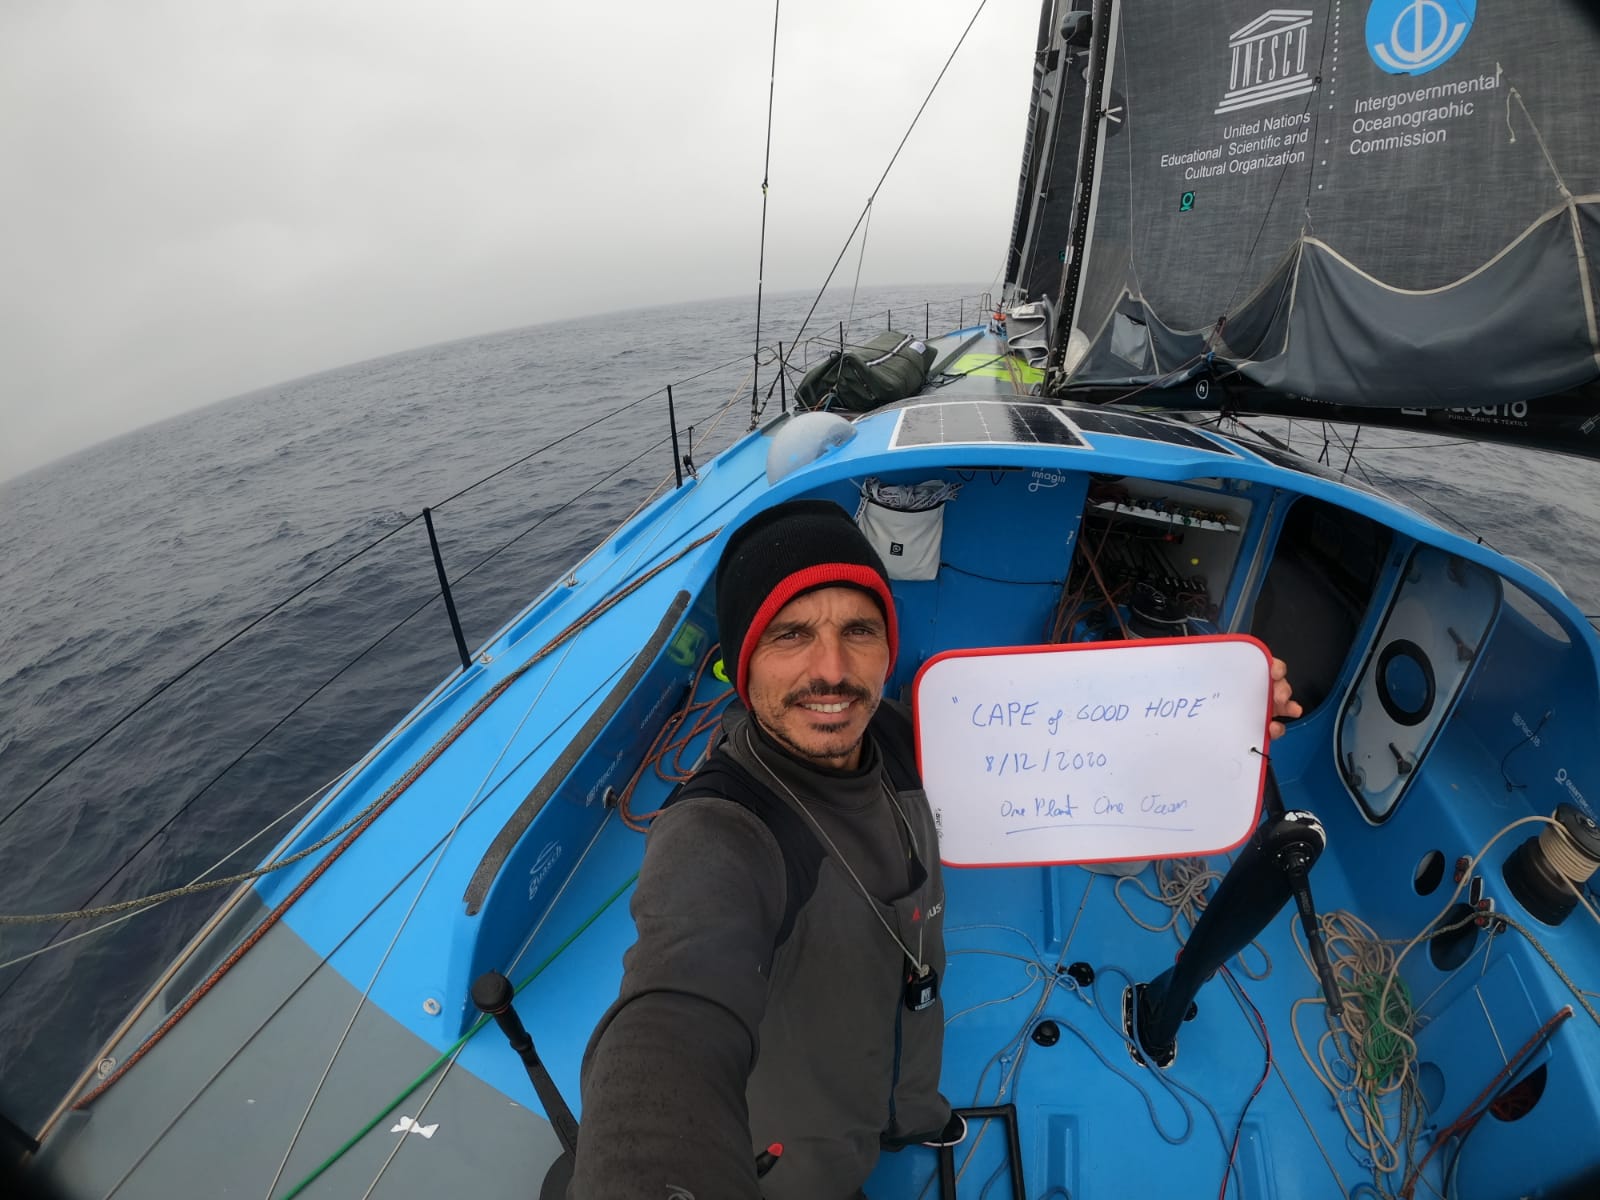 UNESCO
United Nations
Educational Scientific and
Cultural Organization
Intergovernmental
Oceanographic
Commission
PUBLICITARIS & TÈXTILS
innagin
" CAPE of GOOD HOPE "
8/12/2020
One Planet One Ocean
guasch